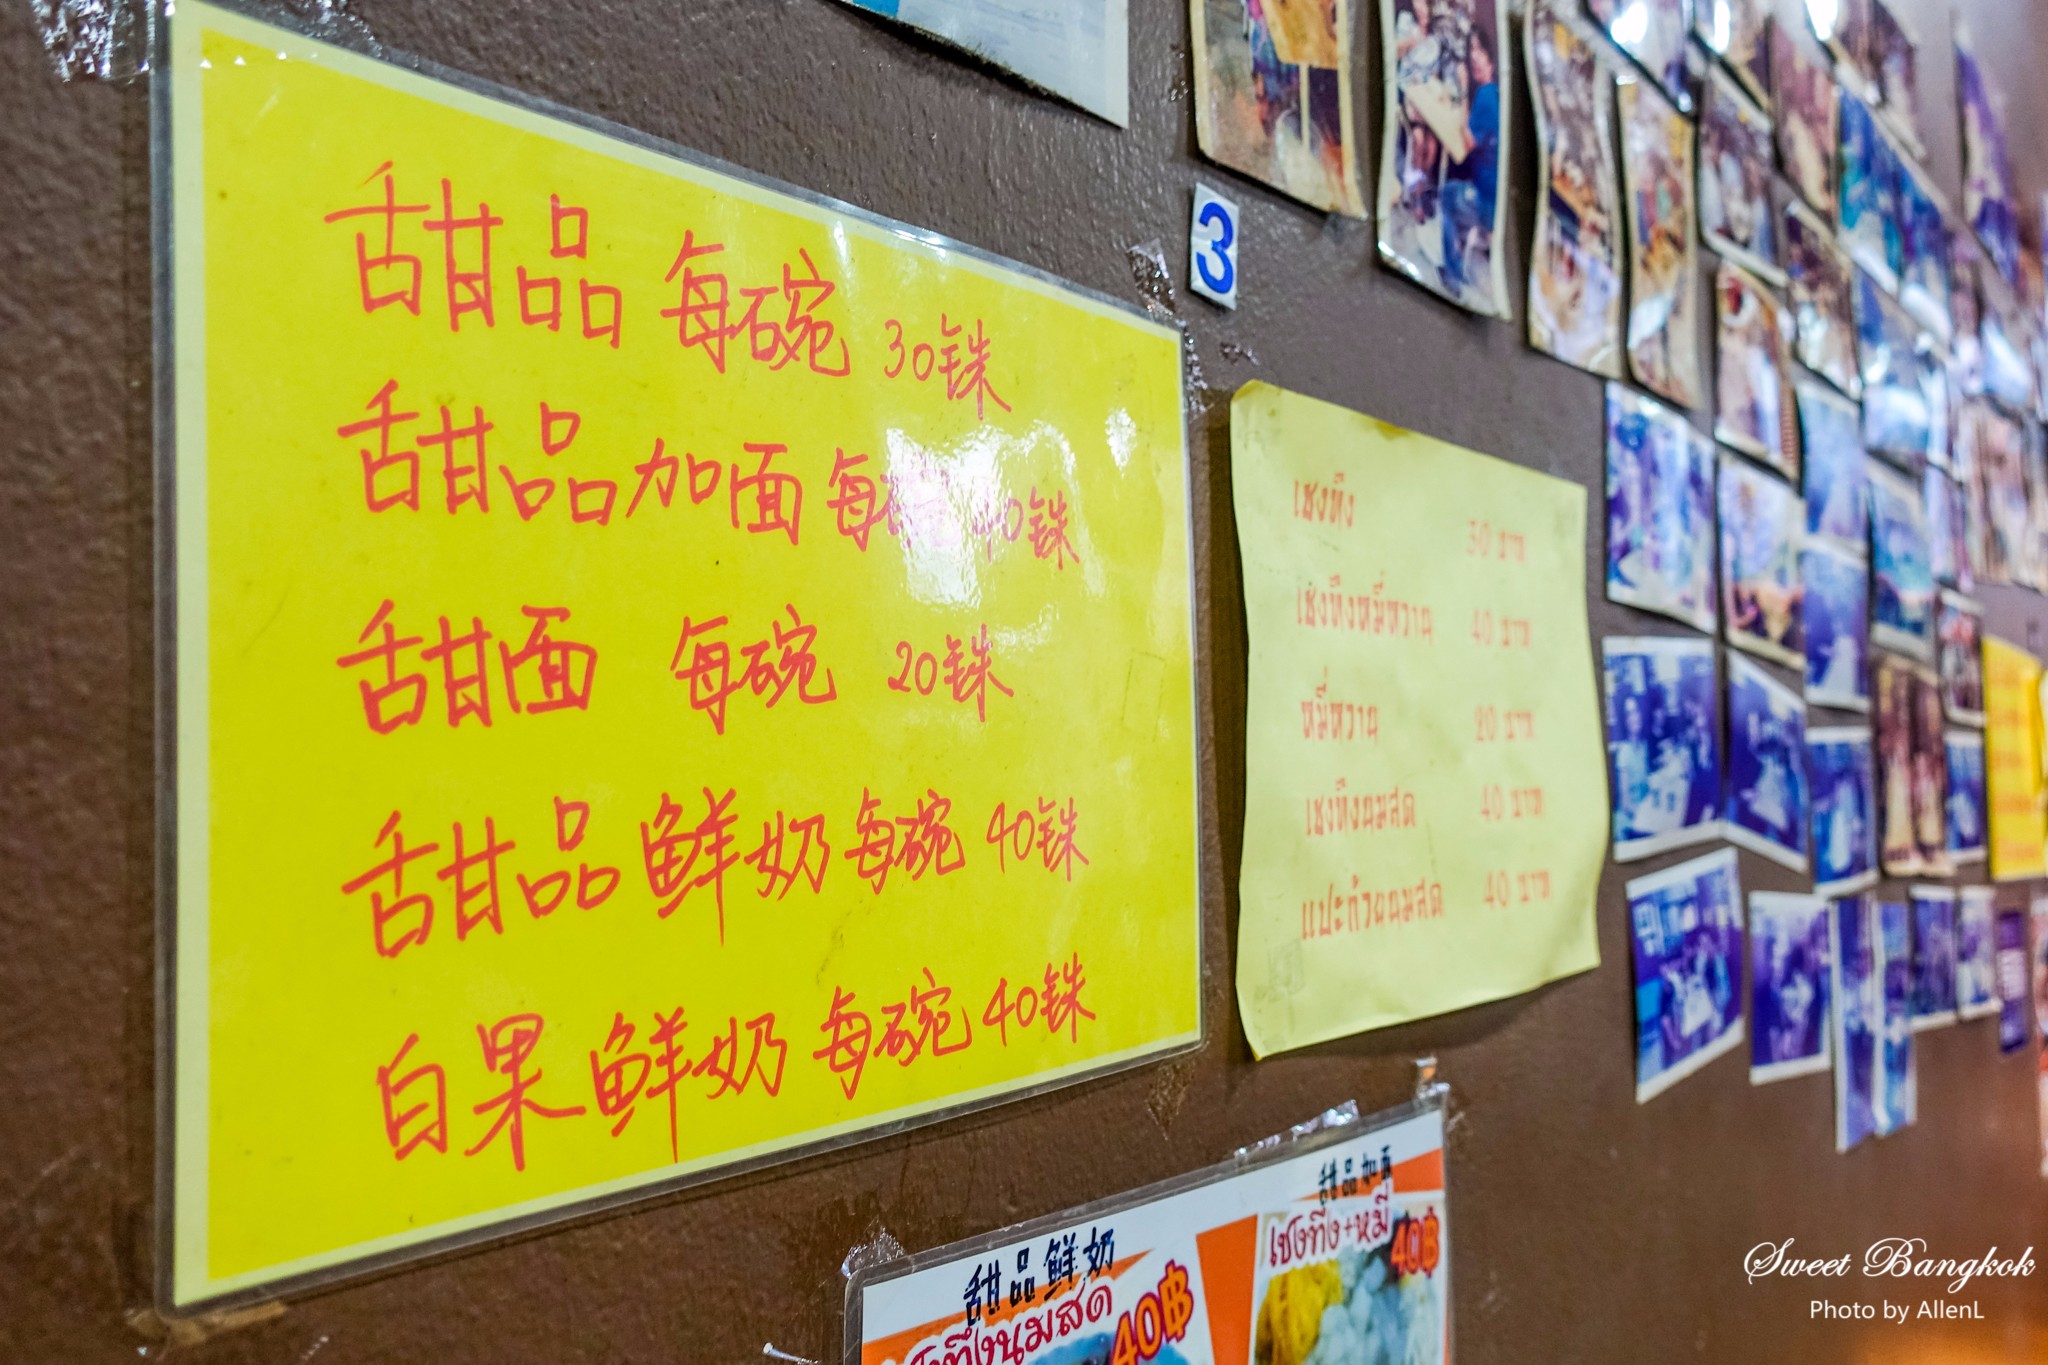 甜品 每碗 30铢
甜品加面 每碗 40铢
甜面 每碗 20铢
甜品鲜奶 每碗 40铢
白果鲜奶 每碗 40铢
3
เชงทึง 30 บาท
เชงทึงหมี่หวาน 40 บาท
หมี่หวาน 20 บาท
เชงทึงนมสด 40 บาท
แปะก๊วยนมสด 40 บาท
甜品鲜奶
เชงทึงนมสด 40฿
甜品加面
เชงทึง+หมี่ 40฿
Sweet Bangkok
Photo by AllenL